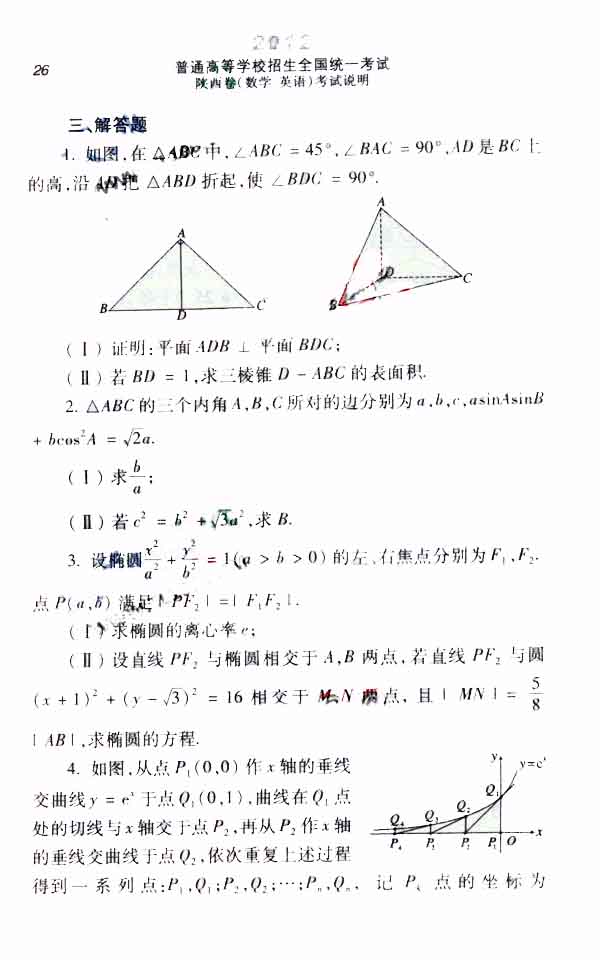 2012
26
普通高等学校招生全国统一考试
陕西卷(数学 英语)考试说明
三、解答题
1. 如图,在△ABC中,∠ABC = 45°,∠BAC = 90°,AD是BC上
的高,沿AD把 △ABD 折起,使 ∠BDC = 90°.
A
B
D
C
A
B
D
C
(Ⅰ) 证明:平面 ADB ⊥ 平面 BDC;
(Ⅱ) 若 BD = 1,求三棱锥 D - ABC 的表面积.
2. △ABC 的三个内角 A,B,C 所对的边分别为 a,b,c,asinAsinB
+ bcos²A = √2a.
(Ⅰ) 求 b/a;
(Ⅱ) 若 c² = b² + √3a²,求 B.
3. 设椭圆 x²/a² + y²/b² = 1(a > b > 0) 的左、右焦点分别为 F₁,F₂.
点 P(a,b) 满足 | PF₂ | = | F₁F₂ |.
(Ⅰ) 求椭圆的离心率 e;
(Ⅱ) 设直线 PF₂ 与椭圆相交于 A,B 两点,若直线 PF₂ 与圆
(x + 1)² + (y - √3)² = 16 相交于 M,N 两点,且 | MN | = 5/8
| AB |,求椭圆的方程.
4. 如图,从点 P₁(0,0) 作 x 轴的垂线
交曲线 y = eˣ 于点 Q₁(0,1),曲线在 Q₁ 点
处的切线与 x 轴交于点 P₂,再从 P₂ 作 x 轴
的垂线交曲线于点 Q₂,依次重复上述过程
得到一系列点:P₁,Q₁;P₂,Q₂;…;Pₙ,Qₙ, 记 Pₖ 点的坐标为
y
y=eˣ
Q₁
Q₂
Q₃
Q₄
P₄
P₃
P₂
P₁
O
x